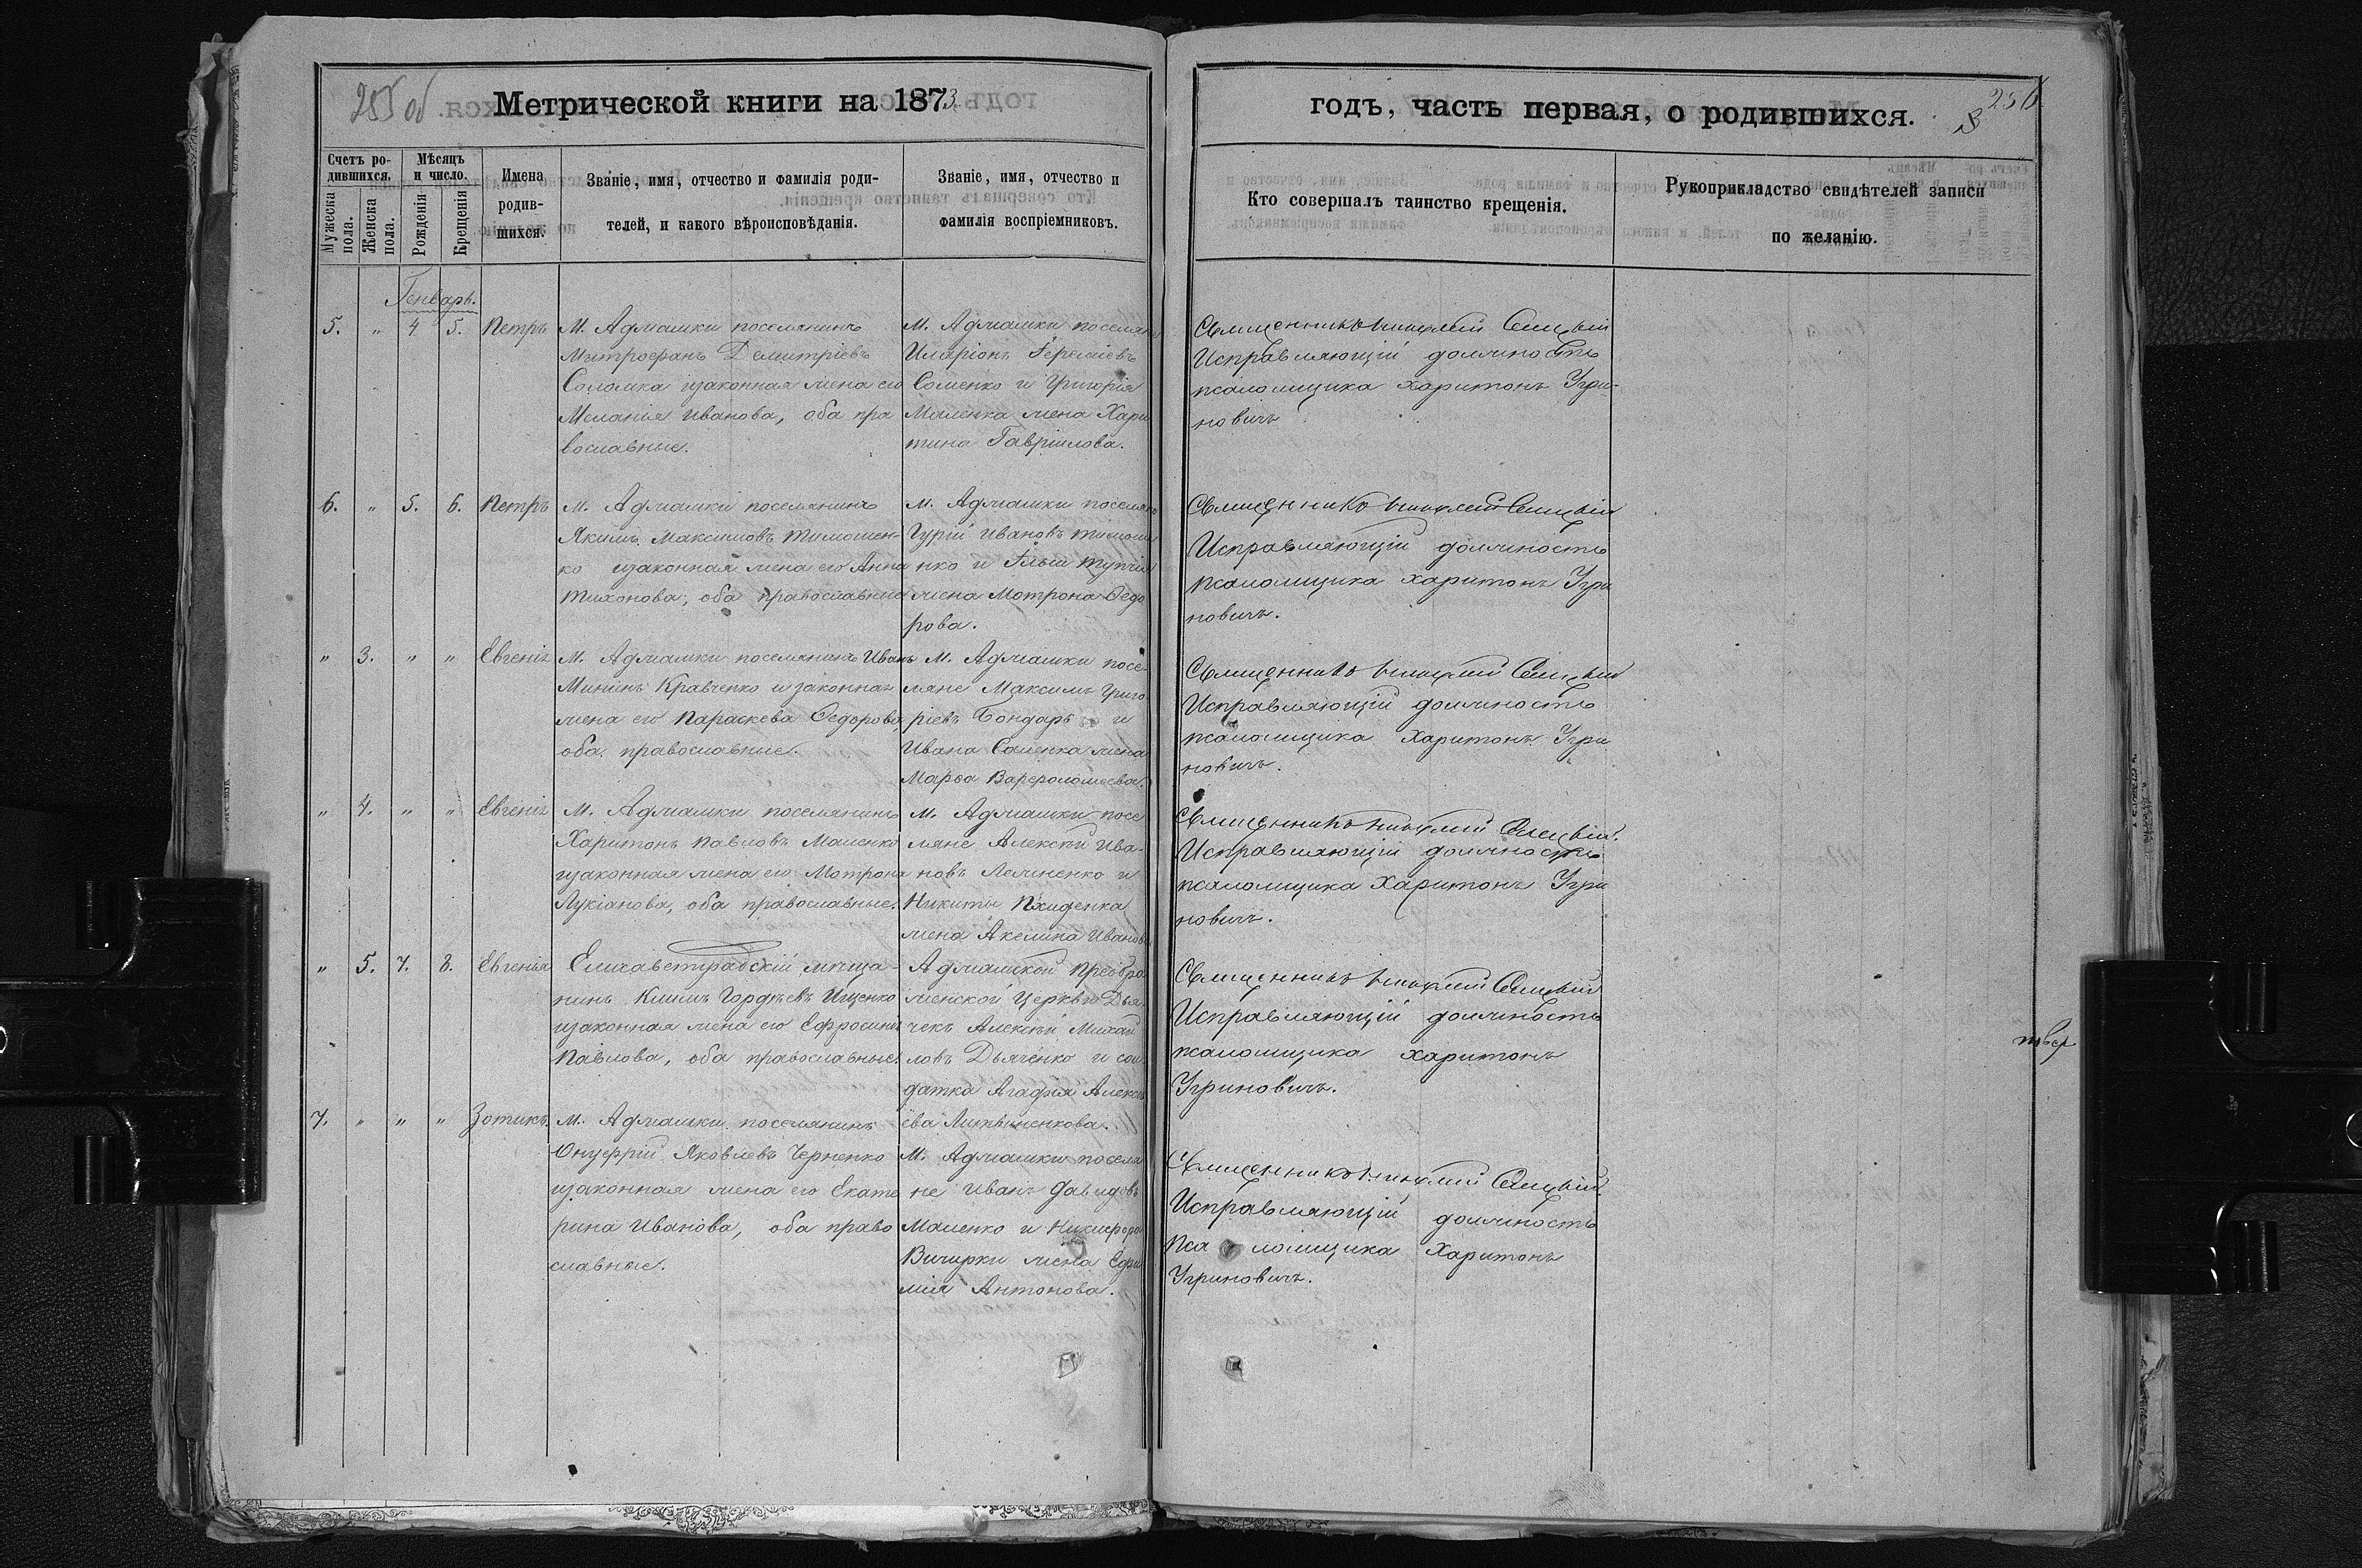 255 об
Метрической книги на 1873
годъ, часть первая, о родившихся.
256
3
Счетъ ро-
дившихся.
Мужеска
пола.
Женска
пола.
Мѣсяцъ
и число.
Рожденія
Крещенія
Имена
родив-
шихся.
Званіе, имя, отчество и фамилія роди-
телей, и какого вѣроисповѣданія.
Званіе, имя, отчество и
фамилія воспріемниковъ.
Кто совершалъ таинство крещенія.
Рукоприкладство свидѣтелей записи
по желанію.
Генварь.
5. „ 4 5. Петръ
М. Аджамки поселянинъ
Митрофанъ Демитріевъ
Соломка изаконная жена его
Меланія Иванова, оба пра
вославные.
М. Аджамки поселяне
Иларіонъ
Сом­енко и Григорія
Маленка жена Хари
тина Гавріилова.
Священникъ
Исправляющій должность
псаломщика Харитонъ Угри-
новичъ
6. „ 5. 6. Петръ
М. Аджамки поселянинъ
Якимъ Максимовъ Тимошен-
ко изаконная жена его Анна
Тихонова, оба православные
М. Аджамки поселяне
Гурій Ивановъ Тимоше
нко и
жена Мотрона Ѳедо
рова.
Священникъ
Исправляющій должность
псаломщика Харитонъ Угри
новичъ.
„ 3. „ „ Евгенія
М. Аджамки поселянинъ Иванъ
Мининъ Кравченко и законная
жена его Параскева Ѳедорова,
оба православные.
М. Аджамки посе-
ляне Максимъ Григо
ріевъ Бондарь и
Ивана жена
Марѳа Варфоломеева.
Священникъ
Исправляющій должность
псаломщика Харитонъ Угри
новичъ.
„ 4. „ „ Евгенія
М. Аджамки поселянинъ
Харитонъ Павловъ Маленко
изаконная жена его Мотрона
Лукіанова, оба православные.
М. Аджамки посе
ляне Алексѣй Ива-
новъ и
Никиты
жена Акелина Иванова
Священникъ
Исправляющій должность
псаломщика Харитонъ Угри
новичъ.
„ 5. 7. 8. Евгенія
Елисаветградскій мѣща-
нинъ Климъ Гордѣевъ Ищенко
изаконная жена его Ефросинія
Павлова, оба православные.
Аджамской Преобра
женской Церкви Дья
чекъ Алексѣй Михай
ловъ Дьяченко и сол
датка Агафія Алексѣ
ева Литвиненкова.
Священникъ
Исправляющій должность
псаломщика Харитонъ
Угриновичъ.
7. „ „ „ Зотикъ.
М. Аджамки поселянинъ
Онуфрій Яковлевъ Черненко
изаконная жена его Екате
рина Иванова, оба право
славные.
М. Аджамки поселя
не Иванъ Давидовъ
Маленко и Никифора
жена Ефи
мія Антонова.
Священникъ
Исправляющій должность
псаломщика Харитонъ
Угриновичъ.